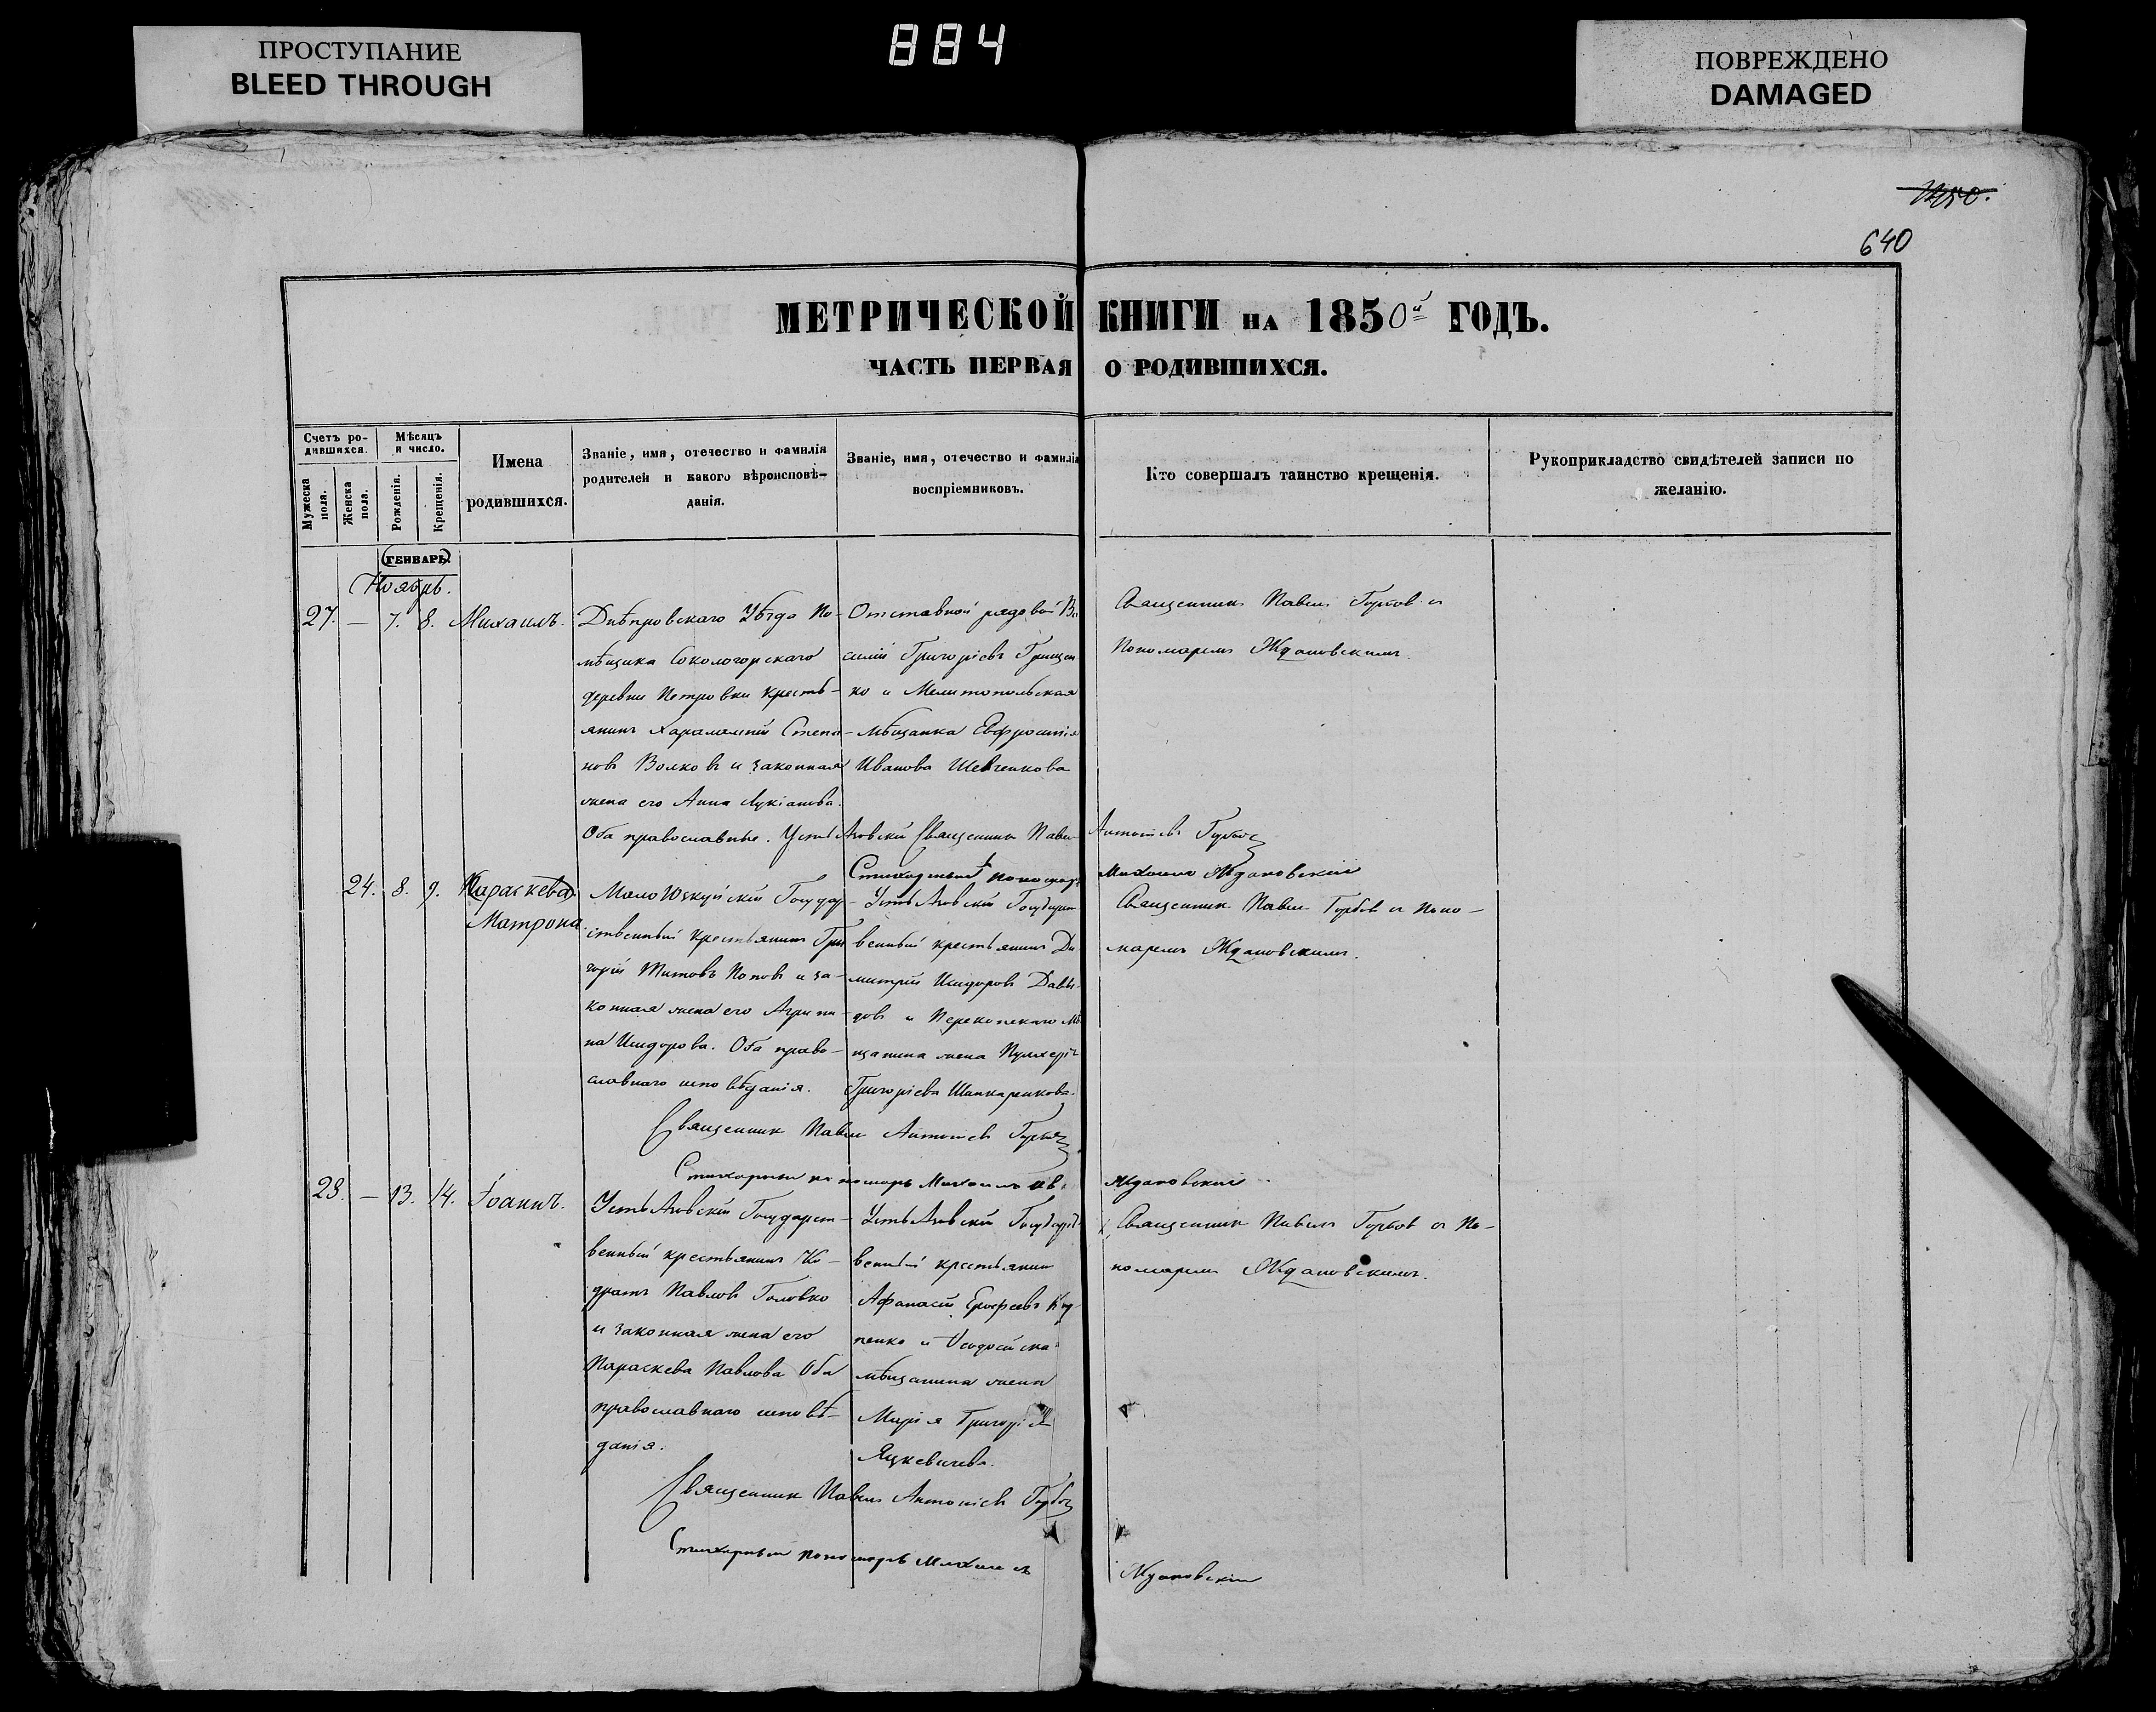 884
ПРОСТУПАНИЕ
BLEED THROUGH
ПОВРЕЖДЕНО
DAMAGED
640
МЕТРИЧЕСКОЙ КНИГИ НА 1850й ГОДЪ.
ЧАСТЬ ПЕРВАЯ О РОДИВШИХСЯ.
Счетъ ро-
дившихся.
Мужеска пола.
Женска пола.
Мѣсяцъ
и число.
Рожденія.
Крещенія.
Имена
родившихся.
Званіе, имя, отечество и фамилія
родителей и какого вѣроисповѣ-
данія.
Званіе, имя, отечество и фамилія
воспріемниковъ.
Кто совершалъ таинство крещенія.
Рукоприкладство свидѣтелей записи по
желанію.
ГЕНВАРЬ
Ноябрь.
27. — 7. 8. Михаилъ.
Днѣпровскаго Уѣзда По-
мѣщика Сокологорскаго
деревни Петровки кресть-
янинъ Харалампій Степа-
новъ Волковъ и законная
жена его Анна Лукіанова.
Оба православные.
Отставной рядовой Ва
силій Григоріевъ Грищен
ко и Мелитопольская
мѣщанка Евфросинія
Иванова Шевченкова
Священникъ Павелъ Гербов и
Пономаремъ Ждановскимъ.
Священникъ Павелъ Антоніевъ
Стихарный пономарь Михаилъ Ждановскій
24. 8. 9. Параскева
Матрона.
Государ-
ственный крестьянинъ Гри
горій Титовъ Поповъ и за-
конная жена его Агрипи-
на Исидорова. Оба право-
славнаго исповѣданія.
Усть Азовскій Государст
венный крестьянинъ Ди-
митрій Исидоровъ Давы-
довъ и Перекопскаго мѣ
щанина жена Пулхерія
Григоріева
Священникъ Павелъ и Поно-
маремъ Ждановскимъ.
Священник Павелъ Антоніевъ
Стихарный пономарь Михаилъ Ждановскій
28. — 13. 14. Іоаннъ.
Усть Азовскій Государст-
венный крестьянинъ Ко-
дратъ Павловъ Головко
и законная жена его
Параскева Павлова Оба
православнаго исповѣ-
данія.
Усть Азовскій Государст-
венный крестьянин
Афанасій Ерофеевъ
и
мѣщанина жена
Марія Григоріева
Яцкевичева.
Священникъ Павелъ и По-
номаремъ Ждановскимъ.
Священник Павелъ Антоніевъ
Стихарный пономарь Михаилъ
Ждановскій